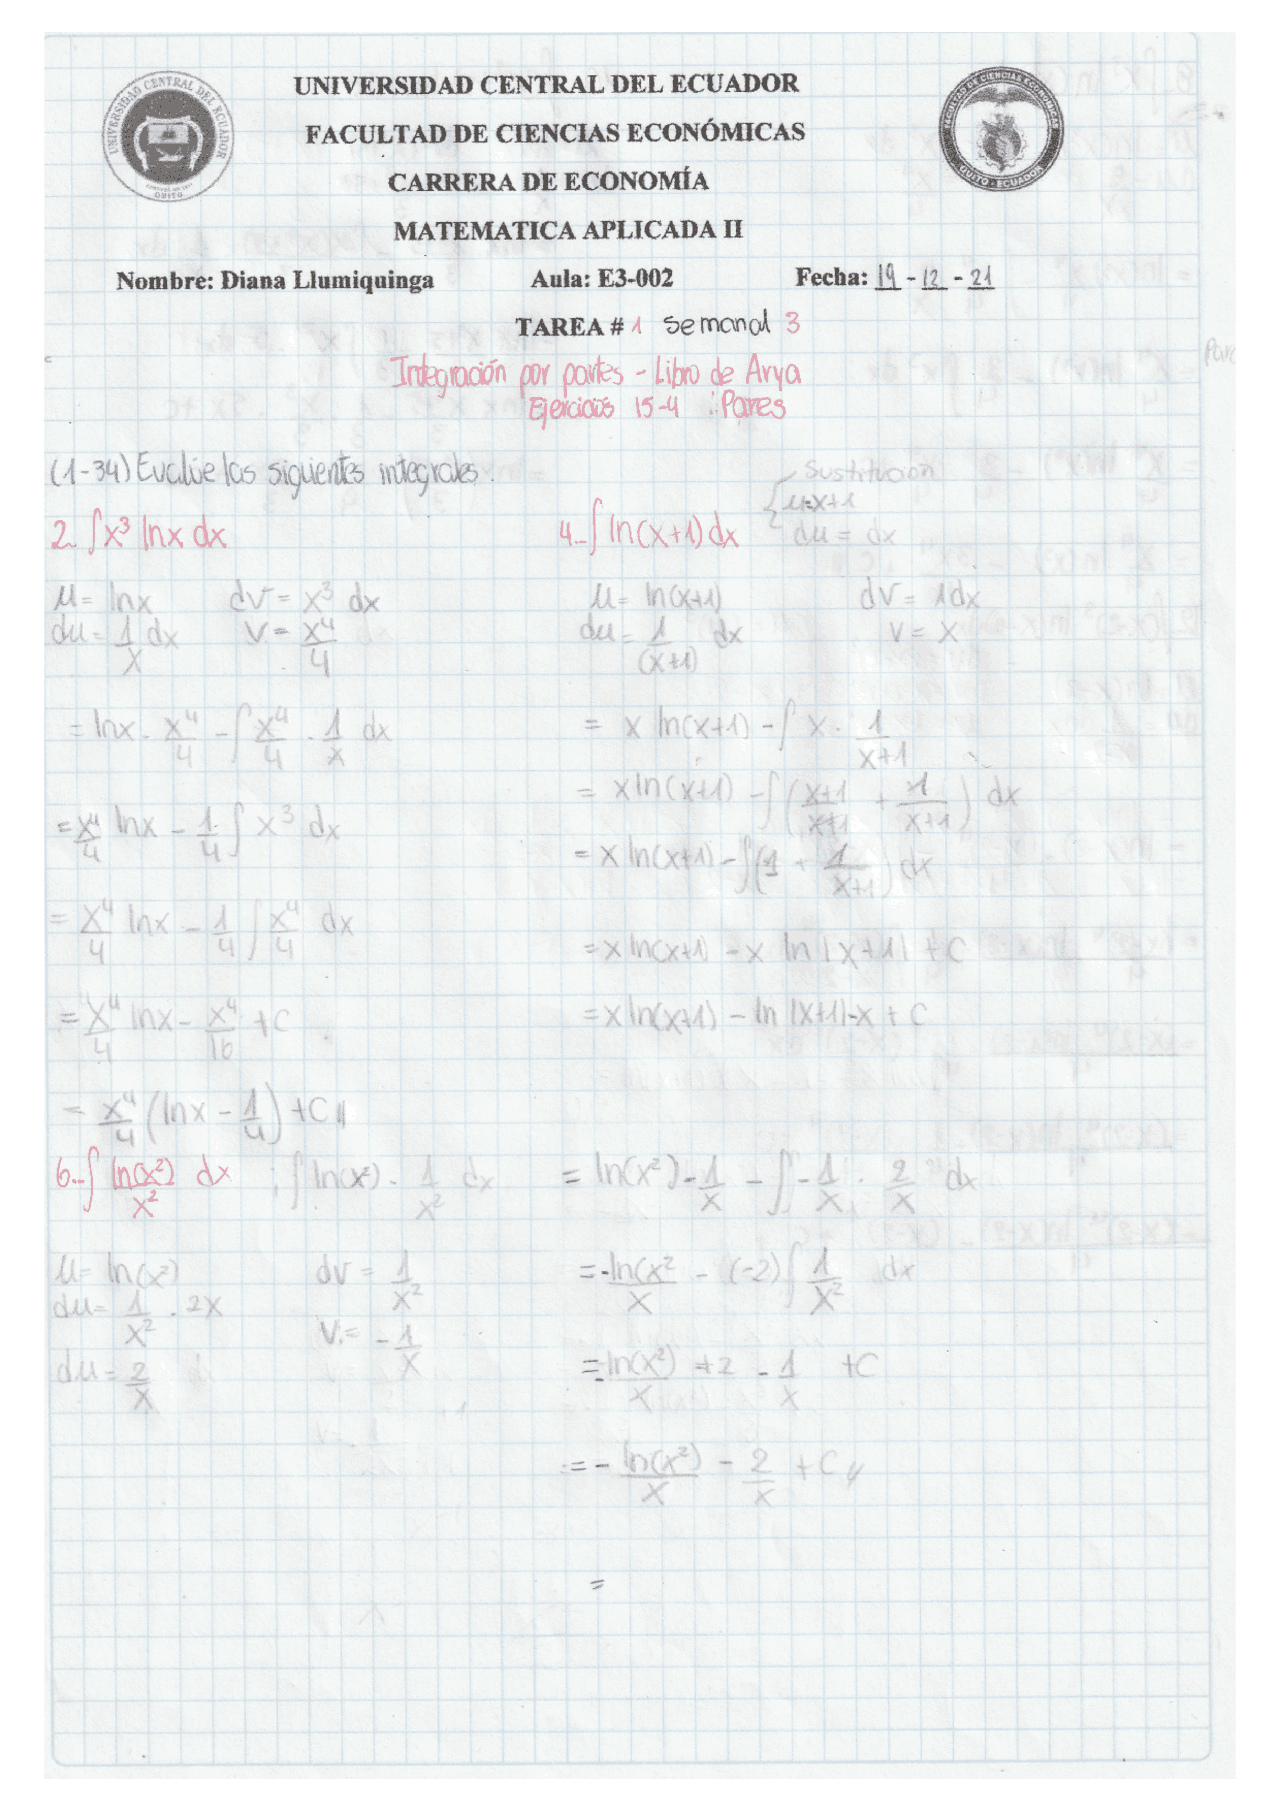 UNIVERSIDAD CENTRAL DEL ECUADOR
FACULTAD DE CIENCIAS ECONÓMICAS
CARRERA DE ECONOMÍA
MATEMATICA APLICADA II
Nombre: Diana Llumiquinga Aula: E3-002 Fecha: 19 - 12 - 21
TAREA # 1 Semanal 3
Integración por partes - Libro de Arya
Ejercicios 15-4 : Pares
(1-34) Evalúe las siguientes integrales.
2.- ∫x³ lnx dx
μ = lnx dv = x³ dx
du = 1/x dx v = x⁴/4
= lnx · x⁴/4 - ∫ x⁴/4 · 1/x dx
= x⁴/4 lnx - 1/4 ∫ x³ dx
= x⁴/4 lnx - 1/4 ∫ x⁴/4 dx
= x⁴/4 lnx - x⁴/16 + C
= x⁴/4 (lnx - 1/4) + C //
4.- ∫ ln(x+1) dx
Sustitución
μ=x+1
du = dx
μ = ln(x+1) dv = 1dx
du = 1/(x+1) dx v = x
= x ln(x+1) - ∫ x · 1/x+1
= x ln(x+1) - ∫ (x+1/x+1 + 1/x+1) dx
= x ln(x+1) - ∫ (1 + 1/x+1) dx
= x ln(x+1) - x ln |x+1| + C
= x ln(x+1) - ln |x+1| - x + C
6.- ∫ ln(x²)/x² dx ; ∫ ln(x²) · 1/x² dx
μ = ln(x²) dv = 1/x²
du = 1/x² · 2x v = - 1/x
du = 2/x
= ln(x²) - 1/x - ∫ - 1/x · 2/x dx
= -ln(x²/x - (-2) ∫ 1/x² dx
= -ln(x²)/x + 2 - 1/x + C
= - ln(x²)/x - 2/x + C //
=